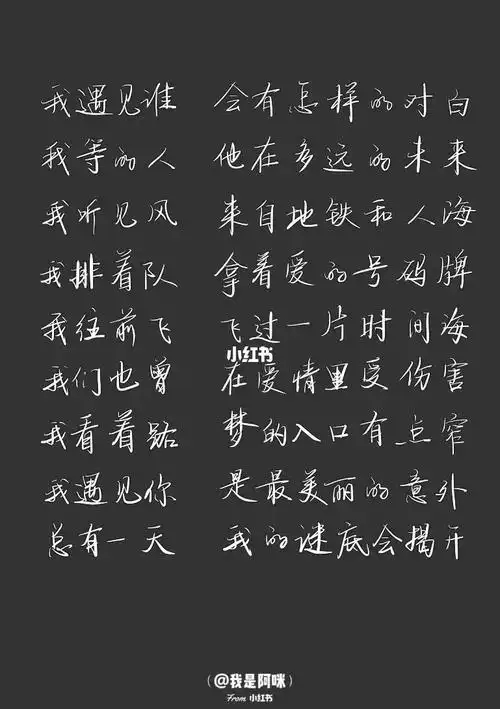 我遇见谁 会有怎样的对白
我等的人 他在多远的未来
我听见风 来自地铁和人海
我排着队 拿着爱的号码牌
我往前飞 飞过一片时间海
小红书
我们也曾 在爱情里受伤害
我看着路 梦的入口有点窄
我遇见你 是最美丽的意外
总有一天 我的谜底会揭开
(@我是阿咪)
From 小红书